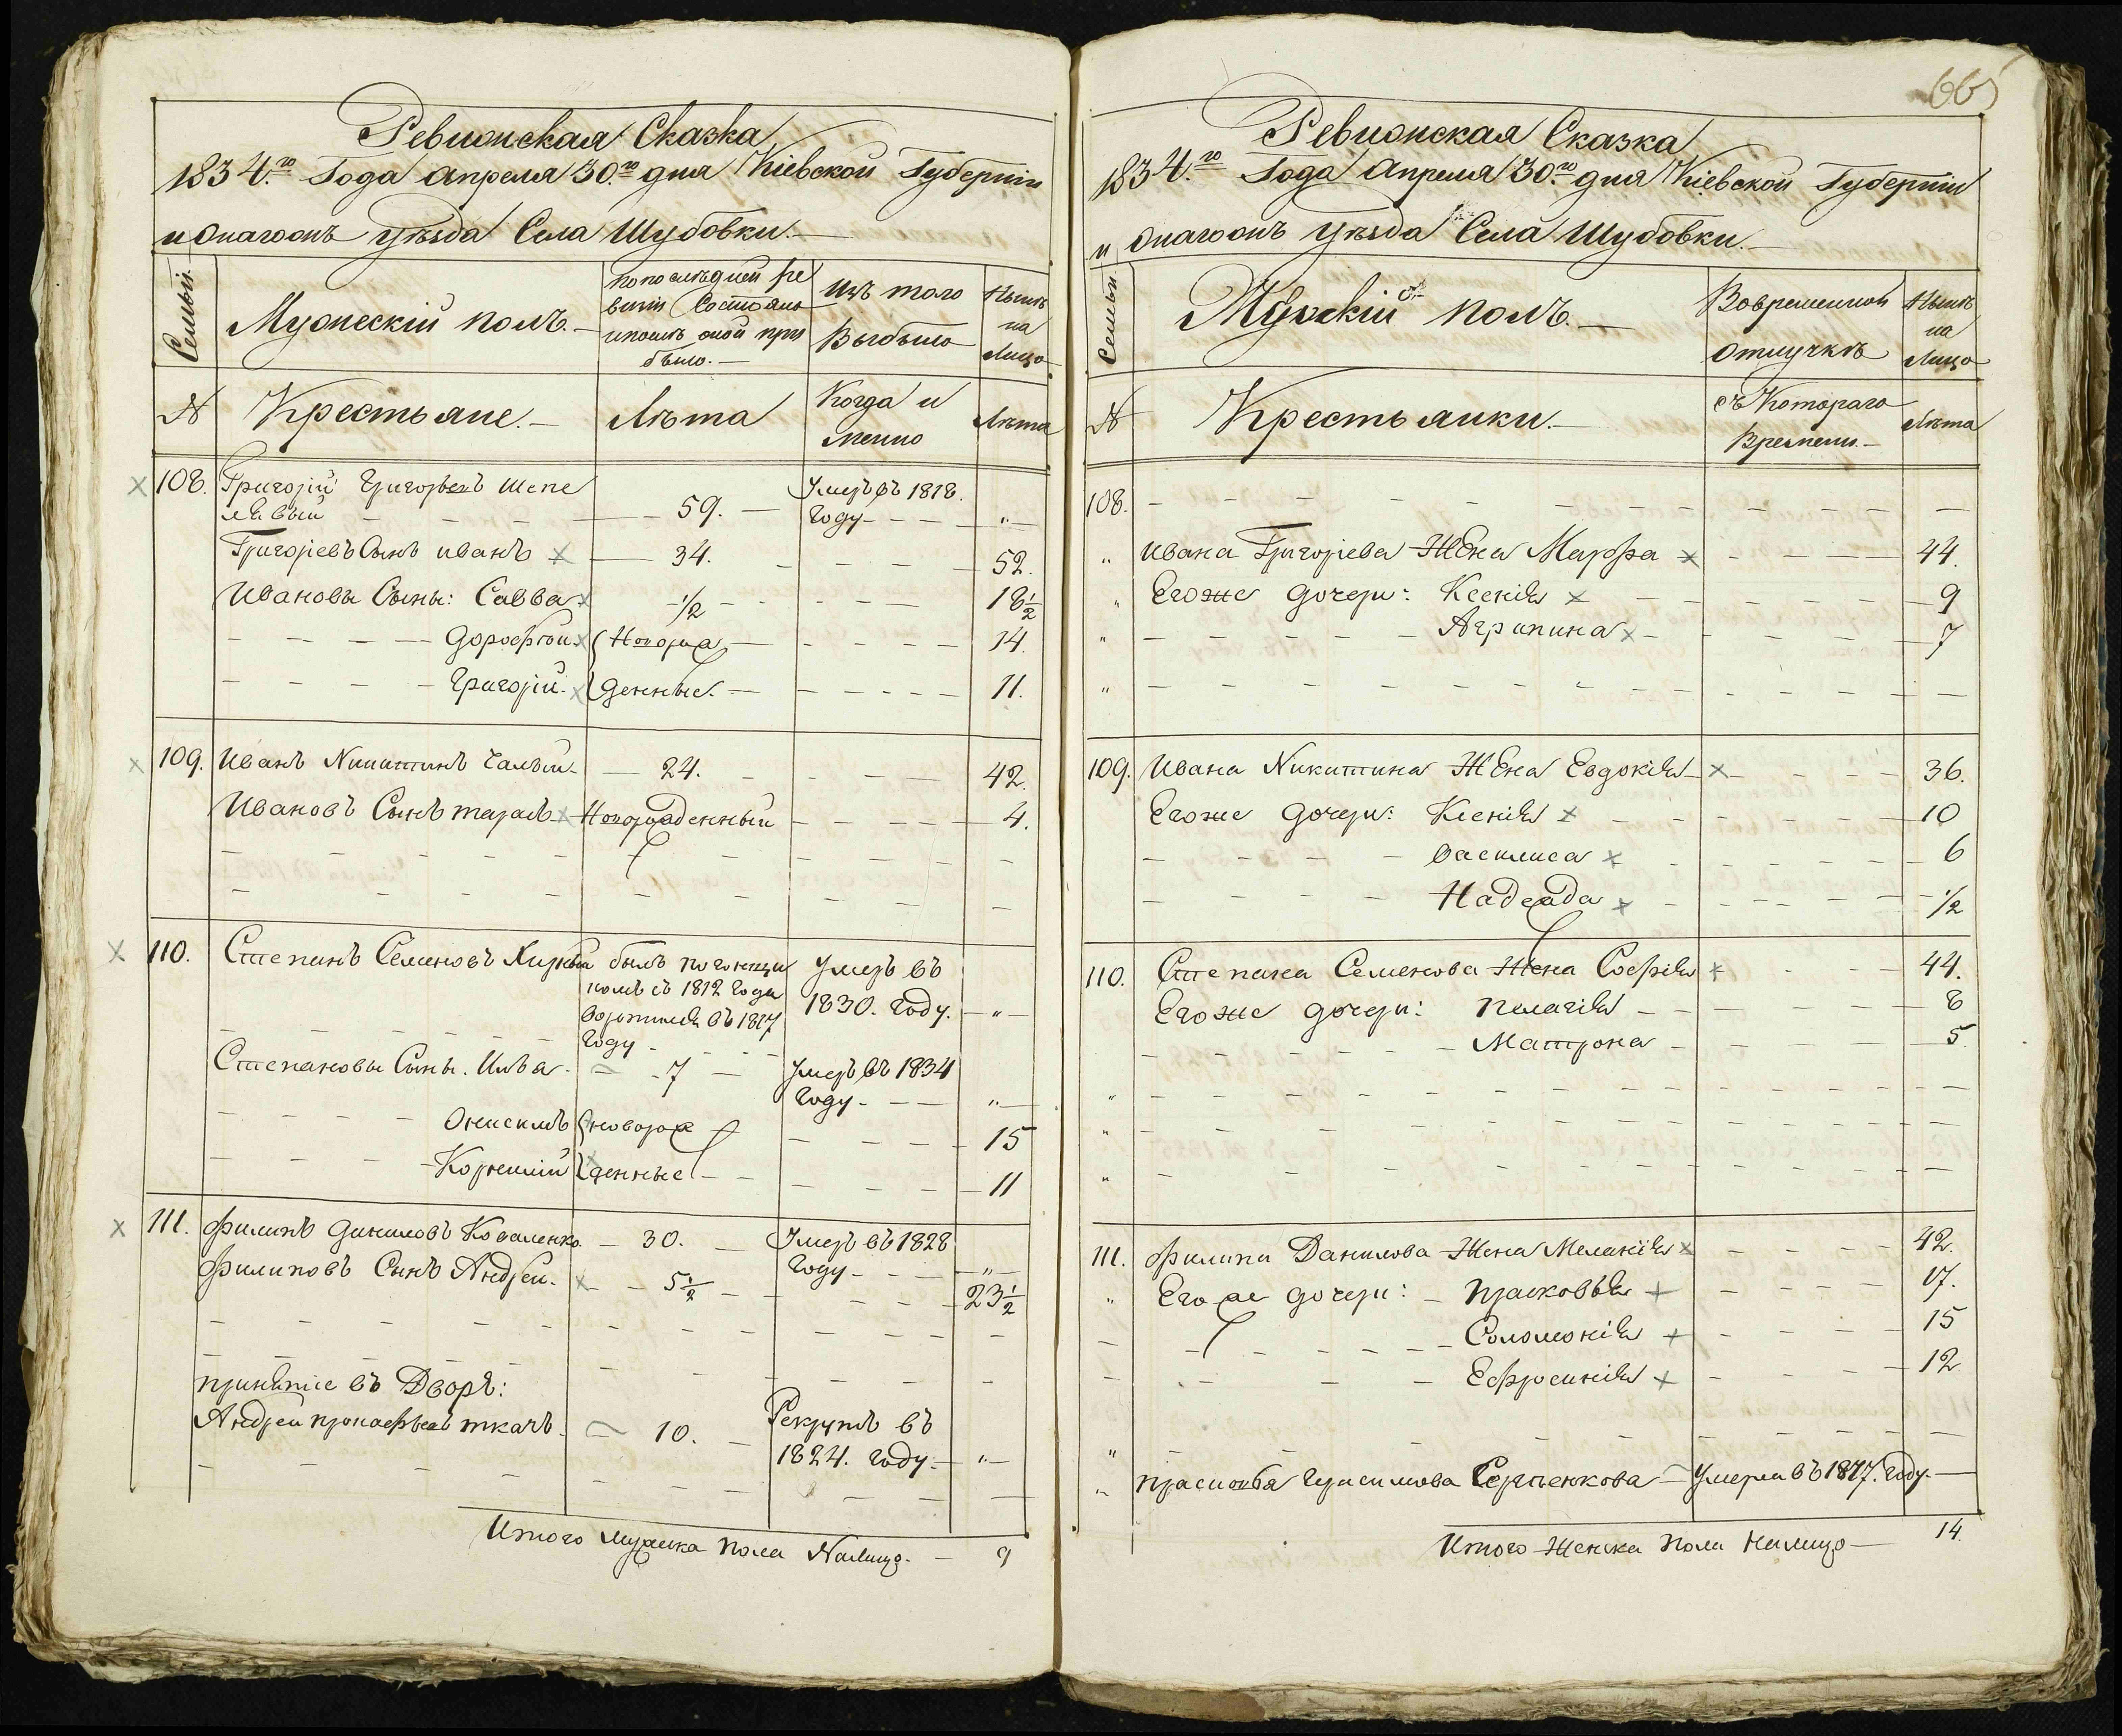 Ревизская Сказка
1834.го Года Апреля 30.го дня Кіевской Губерніи
уѣзда Села Шубовки.
Семьи.
Мужескій полъ.
По послѣдней ре
визіи Состояло
и послѣ оной при
было.
Изъ того
Выбыло
Нынѣ
на
Лицо
N
Крестьяне.
Лѣта
Когда и
Лѣта
108. Григорій Григорьевъ Шепе
лявый 59. Умеръ въ 1818.
Году „
Григоріевъ Сынъ иванъ 34. 52.
Ивановы Сыны: Савва 1/2 18 1/2
Дорофѣй Новорож 14.
Григорій. денные. 11.
109. Иванъ Никитинъ Чалый 24. 42.
Ивановъ Сынъ тарасъ Новорожденный 4.
110. Степанъ Семеновъ былъ
съ 1812 Года
воротился въ 1817
Году
Умеръ въ
1830. Году. „
Степановы Сыны. 7 Умеръ въ 1834
Году „
Онисимъ новорож 15
Корнилій денные 11
111. Филипъ Даниловъ Коваленко 30. Умеръ въ 1828
Году „
Филиповъ Сынъ Андрей. 5 1/2 23 1/2
принятіе въ Дворъ:
Андрей прокофьевъ ткачъ. 10. Рекрутъ въ
1824. Году. „
Итого мужска пола Налицо. 9
665
Ревизская Сказка
1834.го Года Апреля 30.го дня Кіевской Губерніи
уѣзда Села Шубовки.
Семьи
полъ.
Во временной
отлучкѣ
Нынѣ
на
Лицо
N
Крестьянки.
съ Котораго
Времени.
Лѣта
108.
„ Ивана Григоріева Жена Марфа 44.
„ Егоже дочери: Ксенія 9
„ Агрипина 7
„
109. Ивана Никитина Жена Евдокія 36.
Егоже дочери: Ксенія 10
Василиса 6
Надежда 1/2
110. Степана Семенова Жена Софія 44.
Егоже дочери: Пелагія 8
Матрона 5.
„
„
„
111. Филипа Данилова Жена Меланія 42.
„ Его же дочери: Прасковья 17.
Соломонія 15
Ефросинія 12
„
„ Герасимова Умерла въ 1817. Году.
Итого Женска пола Налицо 14.